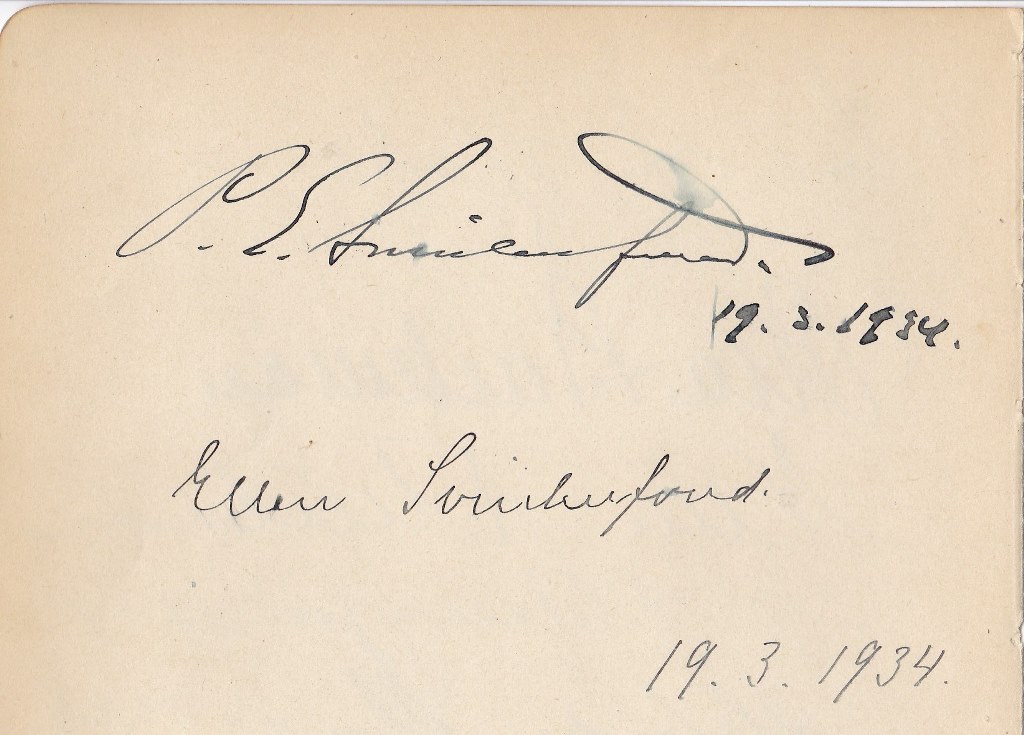 P. E. Svinhufvud.
19. 3. 1934.
Ellen Svinhufvud.
19. 3. 1934.